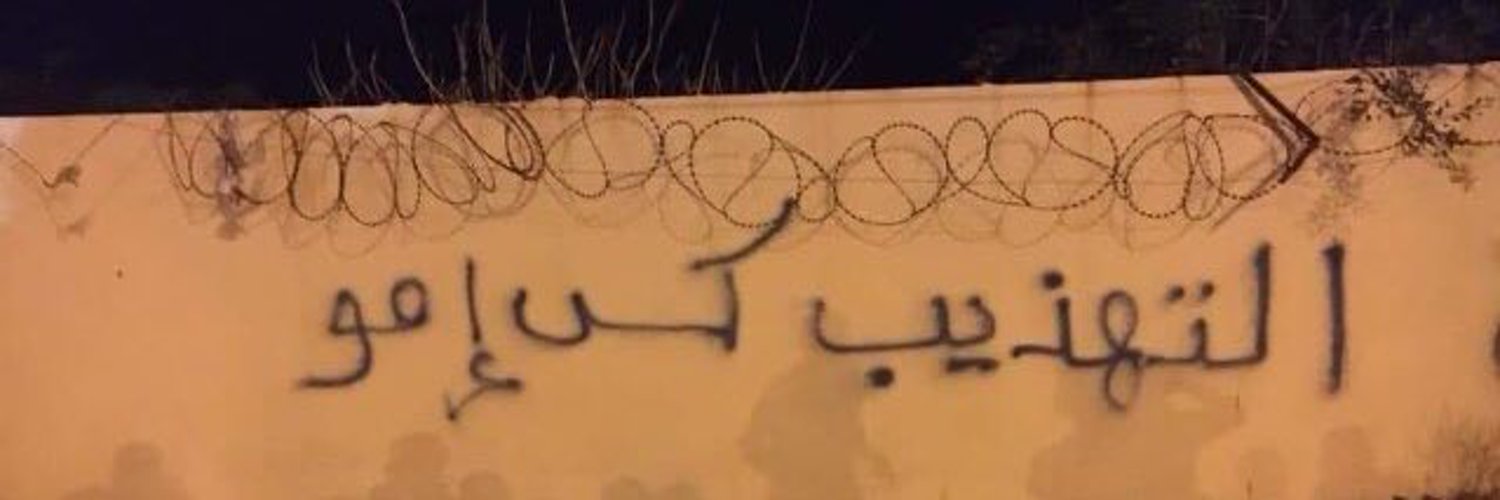 التهذيب كس إمو